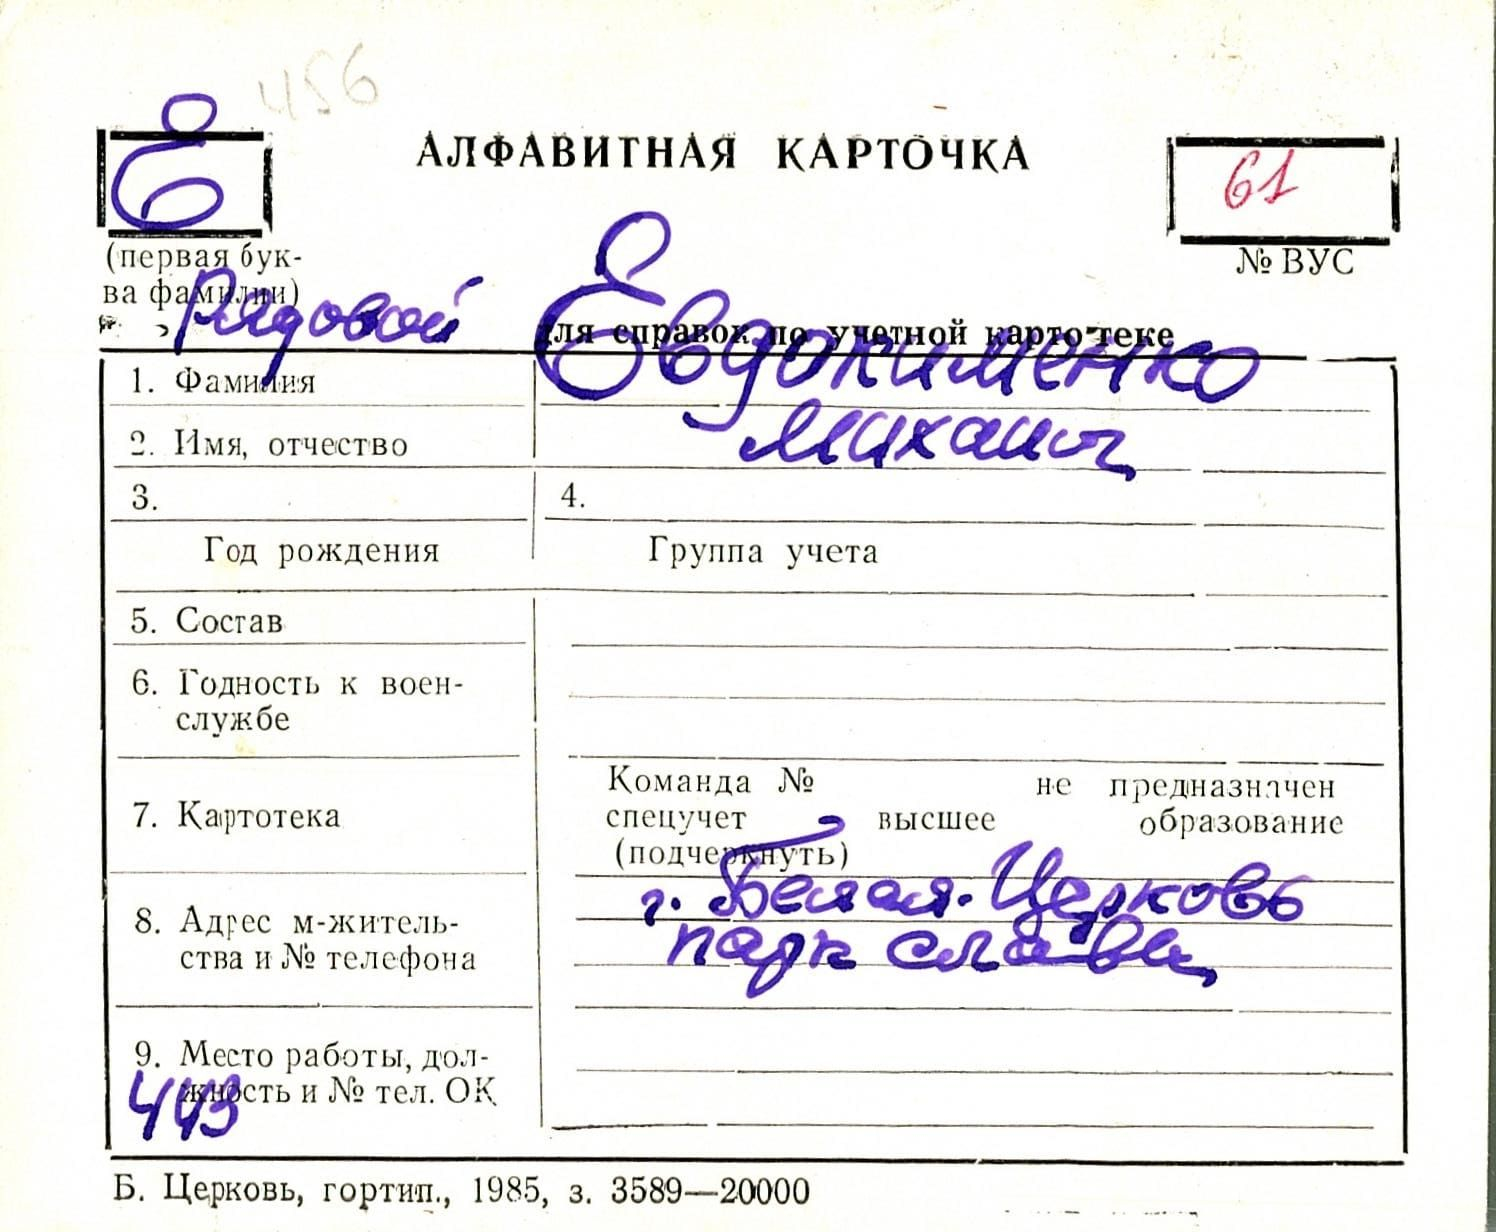 456
Е
АЛФАВИТНАЯ КАРТОЧКА
61
(первая бук-
ва фамилии)
№ ВУС
Рядовой Евдокименко
для справок по учетной картотеке
1. Фамилия
2. Имя, отчество Михаил
3. 4.
Год рождения Группа учета
5. Состав
6. Годность к воен-
службе
7. Картотека
Команда № не предназначен
спецучет высшее образование
(подчеркнуть)
8. Адрес м-житель-
ства и № телефона
г. Белая-Церковь
парк славы
9. Место работы, дол-
жность и № тел. ОК
443
Б. Церковь, гортип., 1985, з. 3589—20000